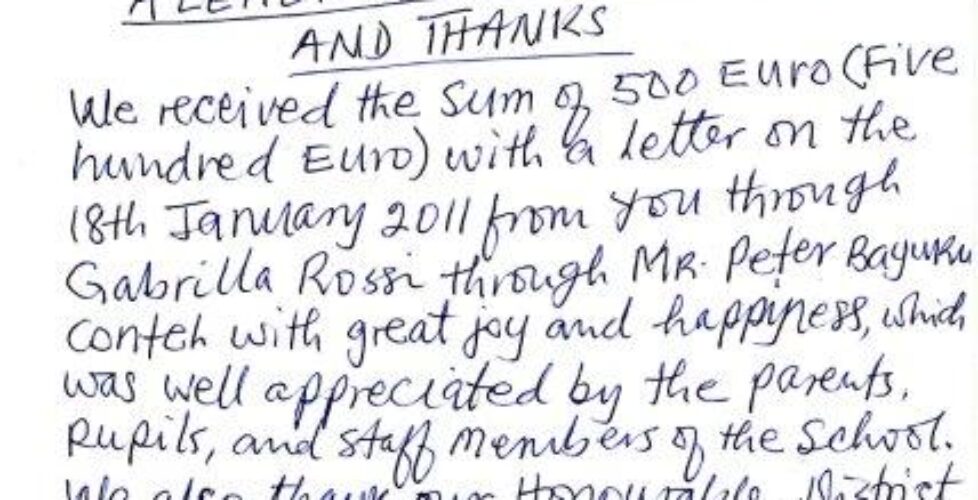 AND THANKS
We received the sum of 500 Euro (Five
hundred Euro) with a letter on the
18th January 2011 from you through
Gabrilla Rossi through MR. Peter Bayuku
conteh with great joy and happiness, which
was well appreciated by the parents,
Pupils, and staff members of the School.
We also thank our Honourable District